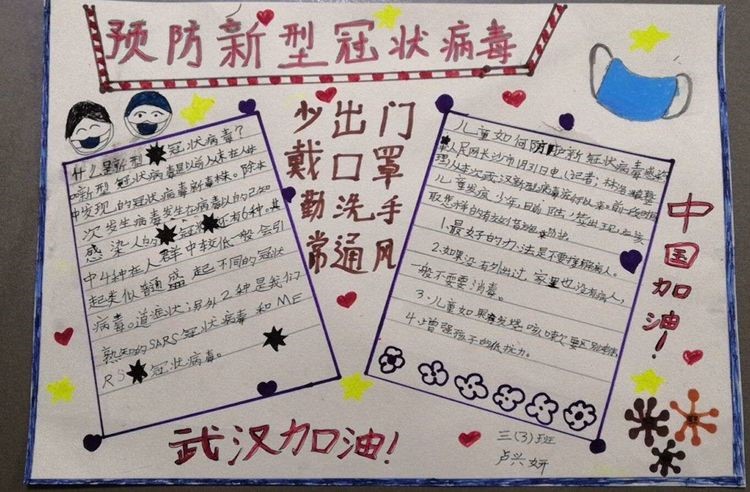 预防新型冠状病毒
少出门
戴口罩
勤洗手
常通风
什么是新型冠状病毒?
新型冠状病毒是以前从未在人体
中发现的冠状病毒新毒株。除本
次发生病毒发生在病毒以的已知
感染人的冠状还有6种。其
中4种在人群中较低一般会引
起类似普通感起不同的冠状
病毒。道症状;另外2种是我们
熟知的SARS冠状病毒和ME
RS冠状病毒。
儿童如何防护新冠状病毒感染
人民网长沙市1月31日电(记者
儿童发病少年,日前医生
取怎样的有效
1.最好的办法是不要接触病人。
2.如果没有外出过,家里也没有病人,
一般不要要消毒。
3.儿童如果发现咳嗽要区别
4.增强孩子的低抗力。
中国加油!
武汉加油!
三(3)班
卢兴妍